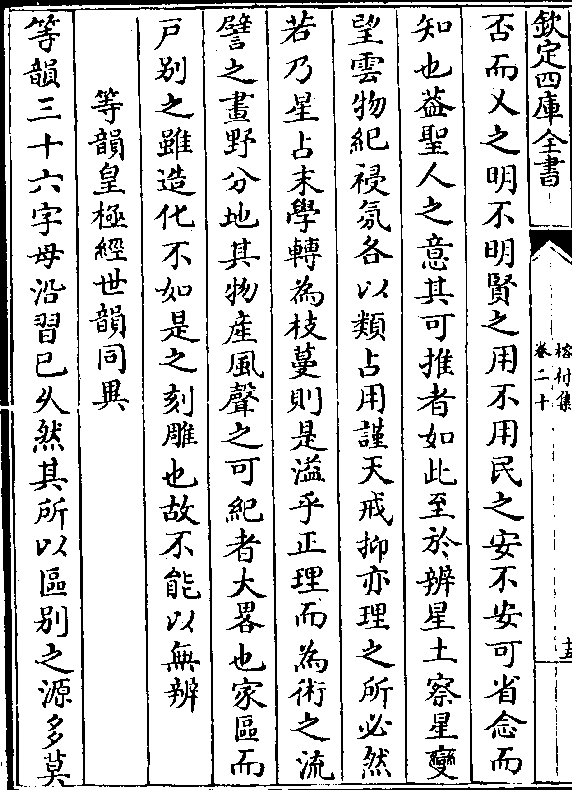 欽定四庫全書
榕村集
卷二十
否而乂之明不明賢之用不用民之安不安可省念而
知也葢聖人之意其可推者如此至於辨星土察星變
望雲物紀祲氛各以類占用謹天戒抑亦理之所必然
若乃星占末學轉為枝蔓則是溢乎正理而為術之流
譬之畫野分地其物產風聲之可紀者大畧也家區而
戸别之雖造化不如是之刻雕也故不能以無辨
等韻皇極經世韻同異
等韻三十六字母沿習已乆然其所以區别之源多莫